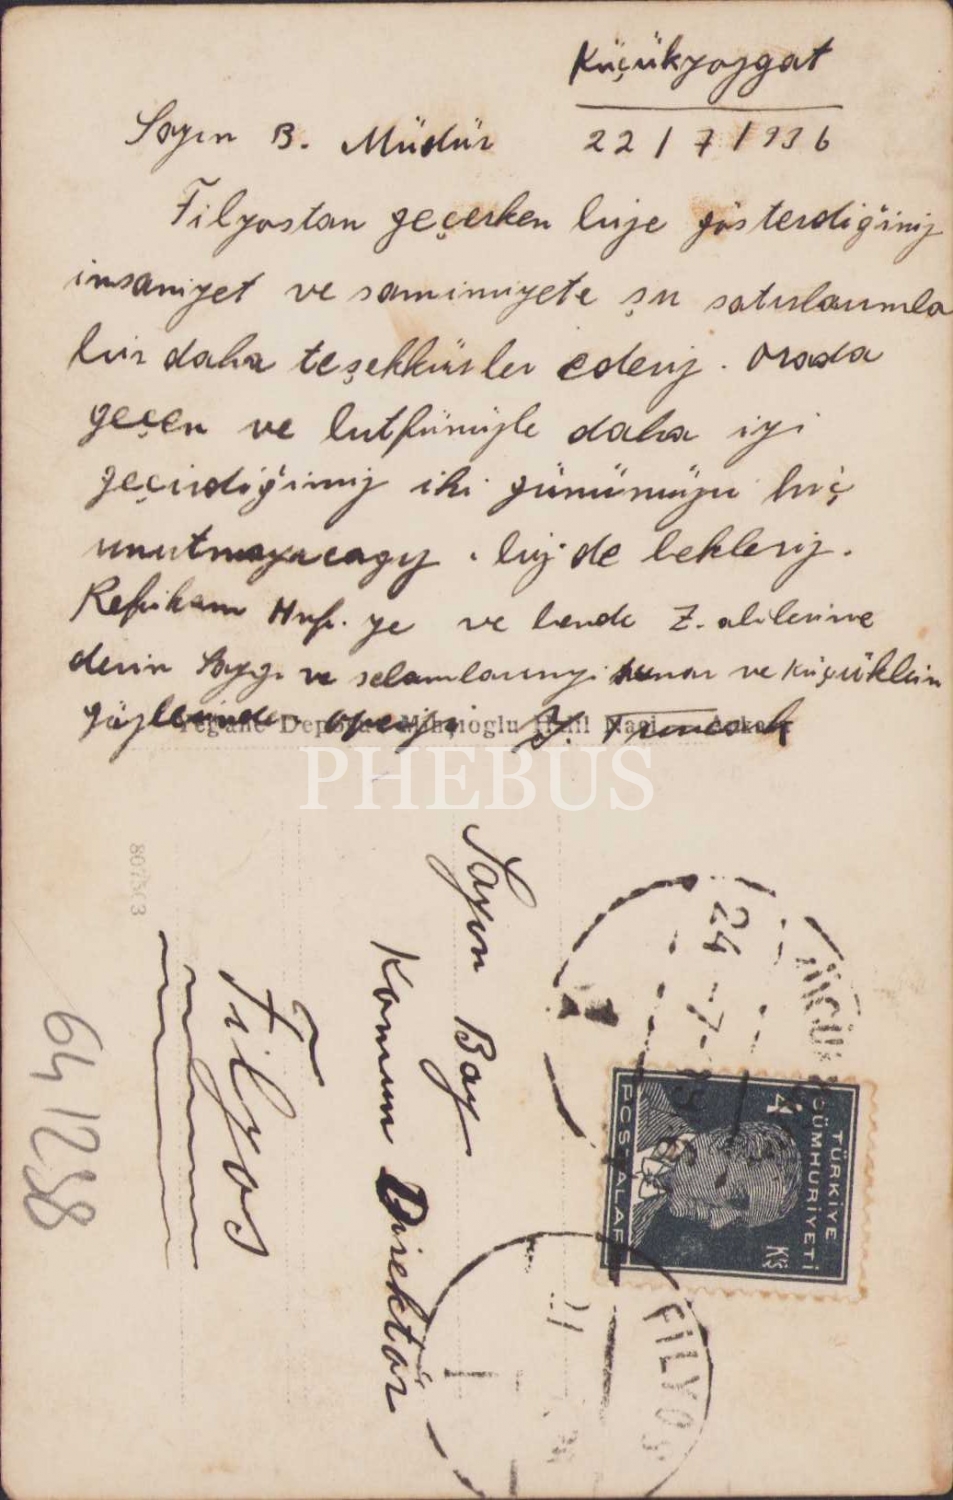 Küçükyozgat
22/7/936
Sayın B. Müdür
Filyostan geçerken bize gösterdiğiniz
insaniyet ve samimiyete şu satırlarımla
bir daha teşekkürler ederiz. Orada
geçen ve lutfünüzle daha iyi
geçirdiğimiz iki günümüzü hiç
unutmayacağız. bizde bekleriz.
Refikam Hnf. ye ve bende Z. alilerine
derin saygı ve selamlarımızı sunar ve küçüklerin
gözlerinden öperiz.
Halil Naci
PHEBUS
807503
Sayın Bay
Komun Direktör
Filyos
641258
24-7-
TÜRKİYE
CÜMHURİYETİ
4
Kş
POSTALARI
FİLYOS